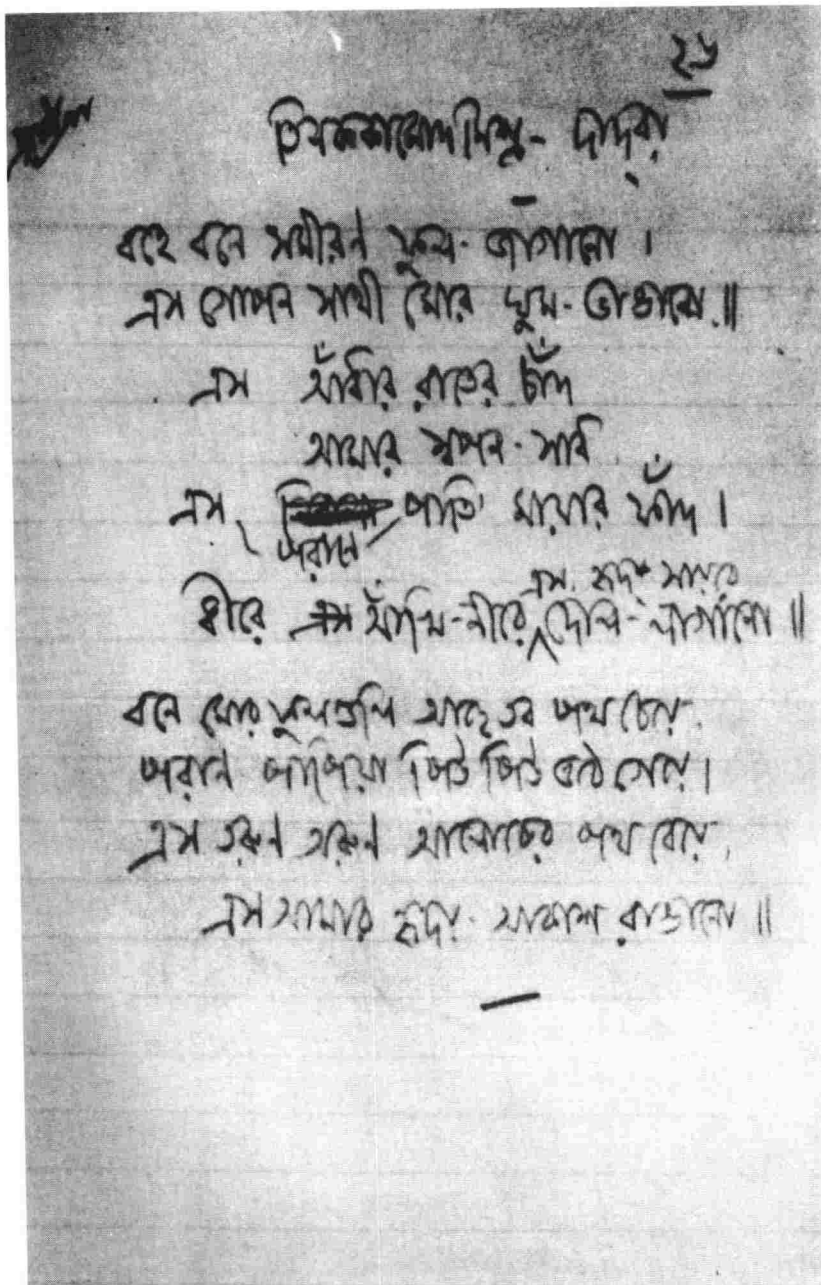 ২৬
তিলককামোদমিশ্র - দাদ্‌রা
বহে বনে সমীরণ ফুল-জাগানো ।
এস গোপন সাথী মোর ঘুম-ভাঙানো ॥
এস আঁধার রাতের চাঁদ
আমার স্বপন-সাধ
এস পরানে পাতি' মায়ার ফাঁদ ।
ধীরে আঁখি-নীরে এস হৃদ-সায়রে দোল-লাগানো ॥
বনে মোর ফুলগুলি আছে তব পথ চেয়ে,
পরানে পাপিয়া পিউ পিউ ওঠে গেয়ে ।
এস তরুণ অরুণ আলোকের পথ বেয়ে,
এস আমার হৃদয়-আকাশ রাঙানো ॥